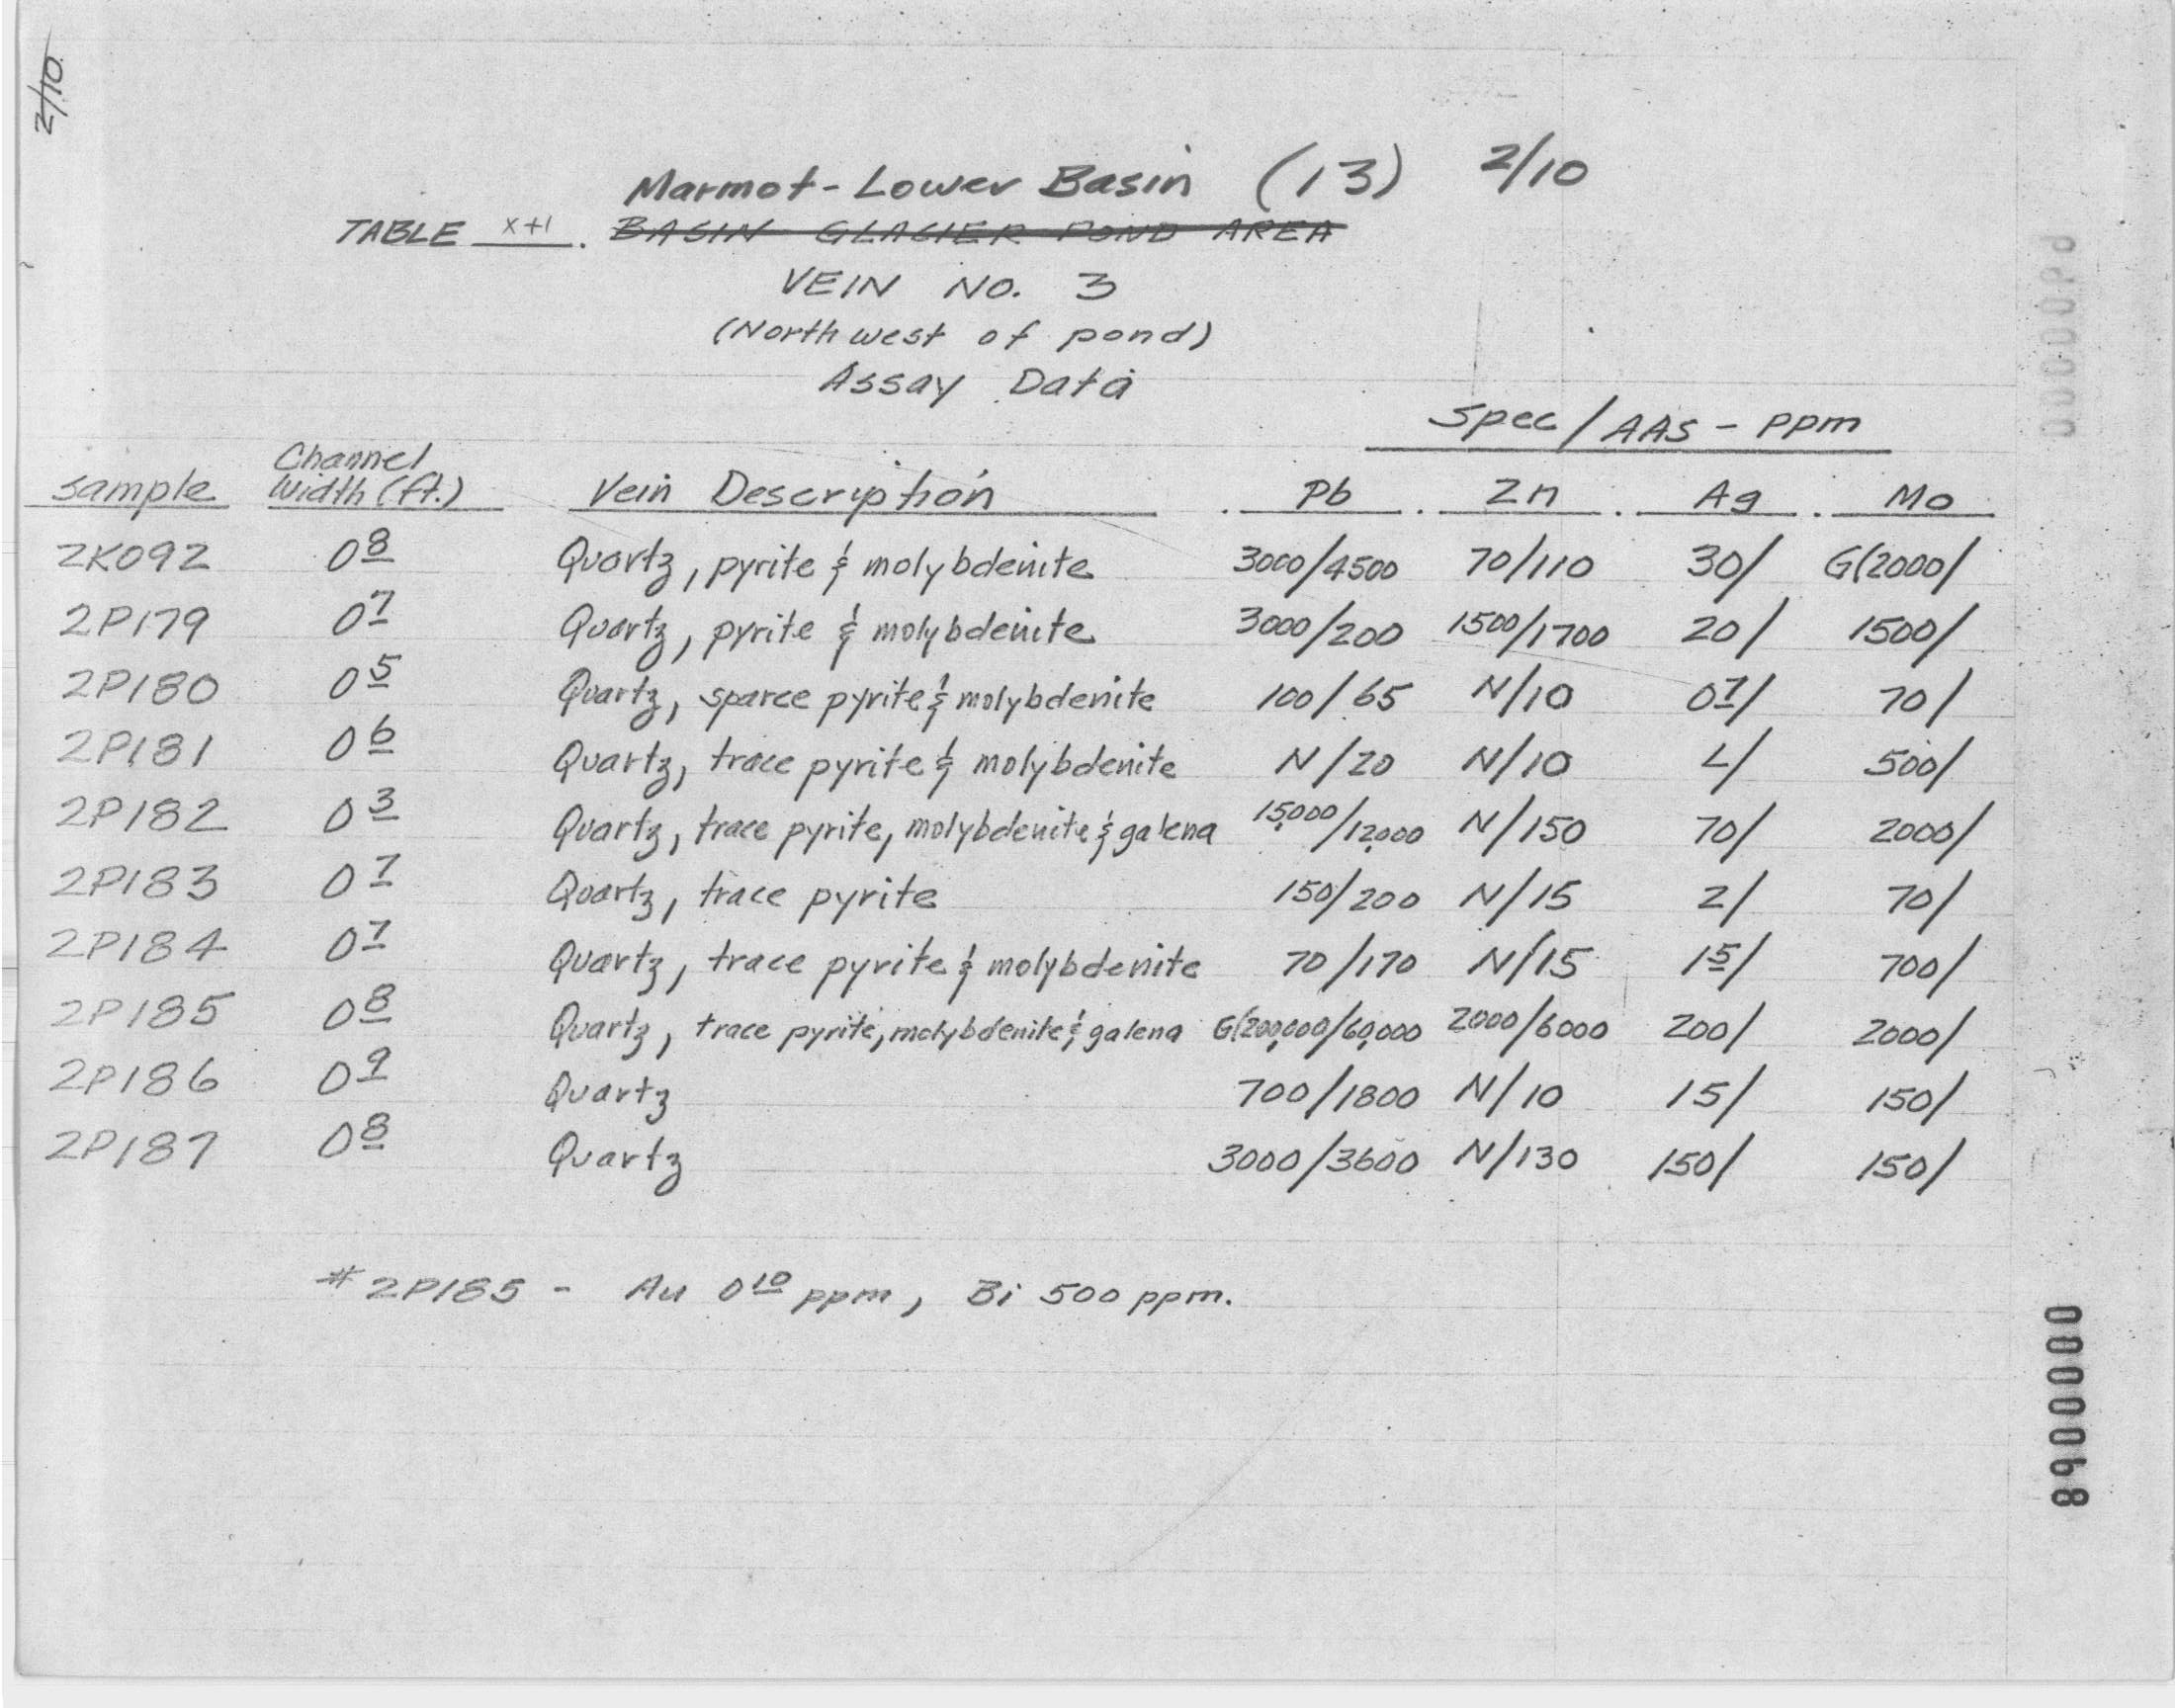 2/10
Marmot-Lower Basin (13) 2/10
TABLE x+1. BASIN GLACIER POND AREA
VEIN NO. 3
(Northwest of pond)
Assay Data
Spec/AAS - ppm
Sample Channel Width (ft.) Vein Description Pb Zn Ag Mo
2K092 0 8 Quartz, pyrite & molybdenite 3000/4500 70/110 30/ G(2000/
2P179 0 7 Quartz, pyrite & molybdenite 3000/200 1500/1700 20/ 1500/
2P180 0 5 Quartz, sparce pyrite & molybdenite 100/65 N/10 0 7/ 70/
2P181 0 6 Quartz, trace pyrite & molybdenite N/20 N/10 L/ 500/
2P182 0 3 Quartz, trace pyrite, molybdenite & galena 15,000/12,000 N/150 70/ 2000/
2P183 0 7 Quartz, trace pyrite 150/200 N/15 2/ 70/
2P184 0 7 Quartz, trace pyrite & molybdenite 70/170 N/15 1 5/ 700/
2P185 0 8 Quartz, trace pyrite, molybdenite & galena G(20,000/60,000 2000/6000 200/ 2000/
2P186 0 9 Quartz 700/1800 N/10 15/ 150/
2P187 0 8 Quartz 3000/3600 N/130 150/ 150/
#2P185 - Au 0 10 ppm, Bi 500 ppm.
0000068